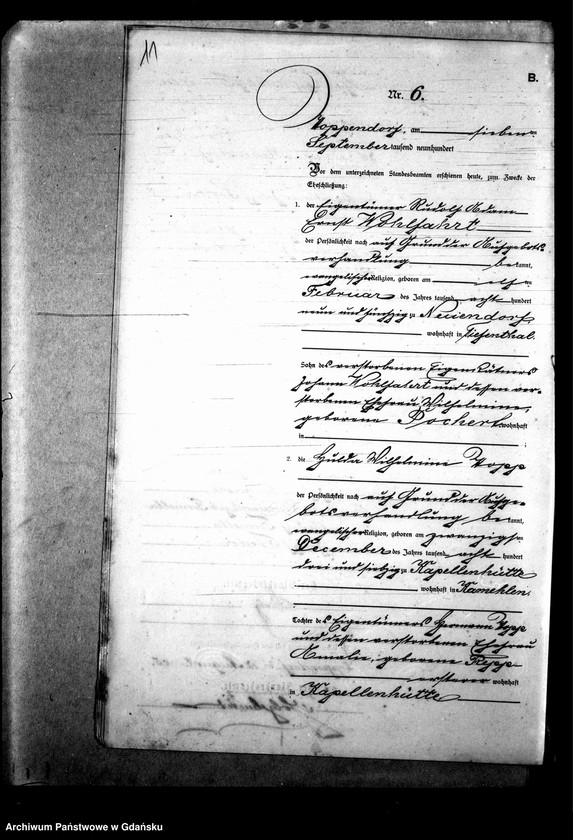 11
B.
Nr. 6.
Hoppendorf, am sieben ten
September tausend neunhundert
Vor dem unterzeichneten Standesbeamten erschienen heute, zum Zwecke der
Eheschließung:
1. der Eigentümer Rudolf Adam
Ernst Wohlfahrt
der Persönlichkeit nach auf Grund der Aufgebots
verhandlung be kannt,
evangelischer Religion, geboren am elf ten
Februar des Jahres tausend acht hundert
neun und fünfzig zu Neuendorf
wohnhaft in Tiefenthal.
Sohn des verstorbenen Eigenkätners
Johann Wohlfahrt und dessen ver-
storbene Ehefrau Wilhelmine,
geborene Pochert wohnhaft
in
2. die Hulda Wilhelmine Kopp
der Persönlichkeit nach auf Grund der Aufge-
botsverhandlung be kannt,
evangelischer Religion, geboren am zwanzigsten
December des Jahres tausend acht hundert
drei und siebzig zu Kapellenhütte
wohnhaft in Kamehlen
Tochter des Eigentümers Hermann Kopp
und dessen verstorbenen Ehefrau
Amalie, geborene
ersterer wohnhaft
in Kapellenhütte
Archiwum Państwowe w Gdańsku